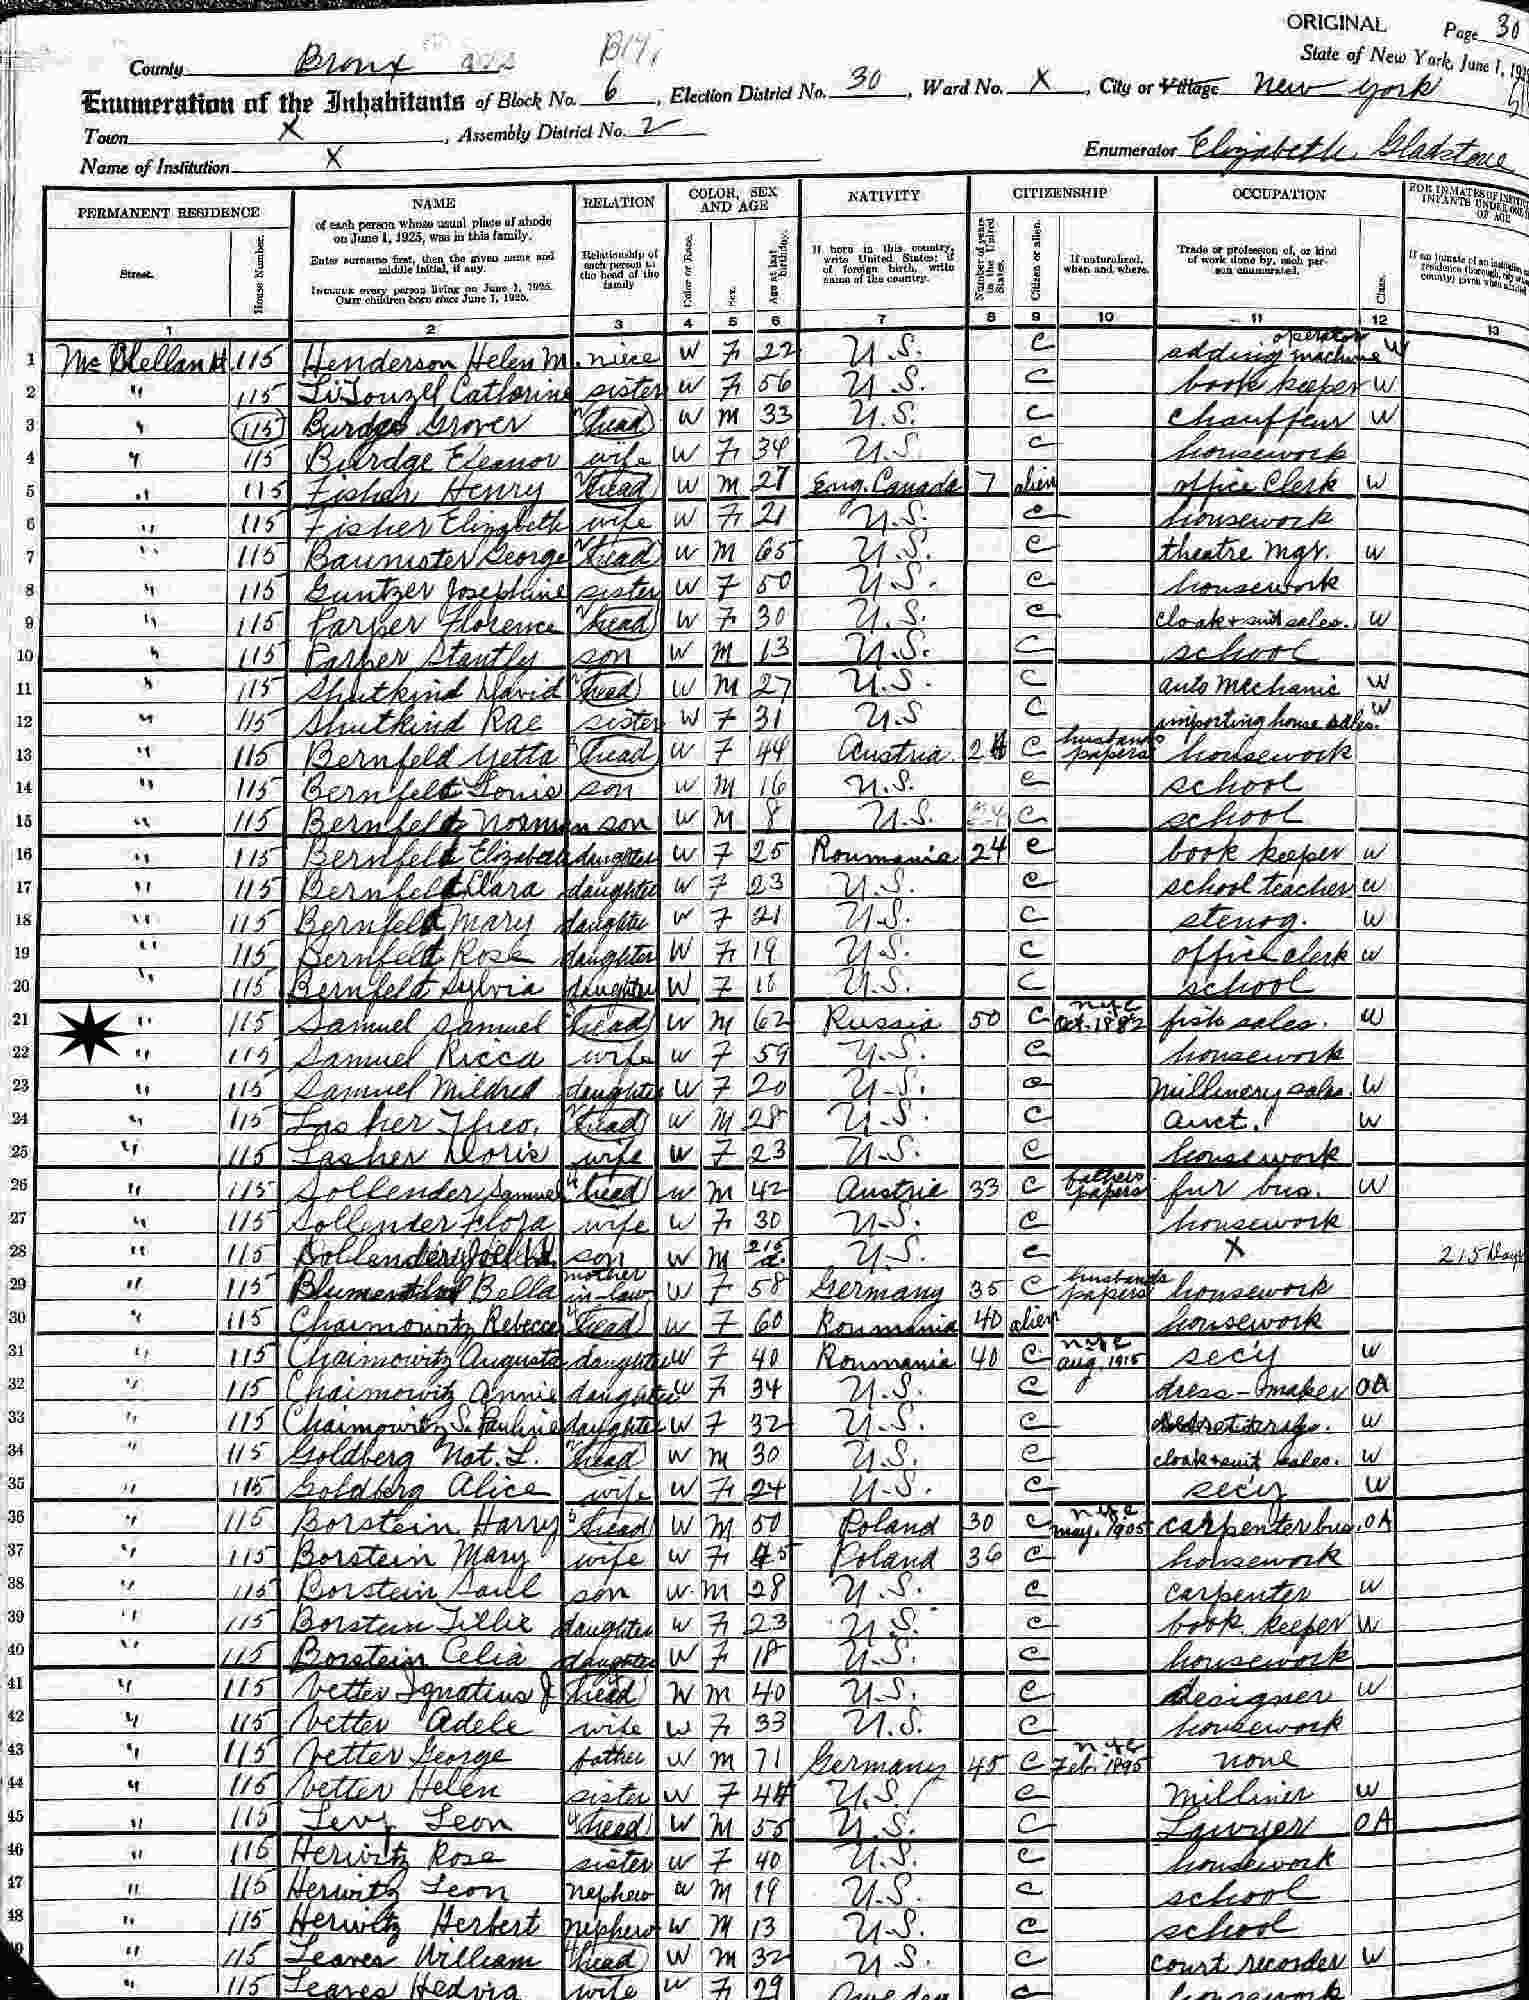 ORIGINAL Page 30
State of New York, June 1, 192
County Bronx
Enumeration of the Inhabitants of Block No. 6, Election District No. 30, Ward No. X, City or Village New York
Town X, Assembly District No. 2
Enumerator Elizabeth Gladstone
Name of Institution X
PERMANENT RESIDENCE NAME RELATION COLOR, SEX AND AGE NATIVITY CITIZENSHIP OCCUPATION
Street. House Number. of each person whose usual place of abode on June 1, 1925, was in this family. Enter surname first, then the given name and middle initial, if any. INCLUDE every person living on June 1, 1925. OMIT children born since June 1, 1925. Relationship of each person to the head of the family Color or Race. Sex. Age at last birthday. If born in this country, write United States; if of foreign birth, write name of the country. Number of years in the United States. Citizen or alien. If naturalized, when and where. Trade or profession of, or kind of work done by, each person enumerated. Class.
1 2 3 4 5 6 7 8 9 10 11 12 13
1 McClellan St. 115 Henderson Helen M. niece W F 22 U.S. C adding machine operator W
2 " 115 LiTouzel Catherine sister W F 56 U.S. C book keeper W
3 " 115 Burdge Grover head W M 33 U.S. C chauffeur W
4 " 115 Burdge Eleanor wife W F 34 U.S. C housework
5 " 115 Fisher Henry head W M 27 Eng. Canada 7 alien office Clerk W
6 " 115 Fisher Elizabeth wife W F 21 U.S. C housework
7 " 115 Baunister George head W M 65 U.S. C theatre mgr. W
8 " 115 Guntzer Josephine sister W F 50 U.S. C housework
9 " 115 Parper Florence head W F 30 U.S. C cloak + suit sales. W
10 " 115 Parper Stantly son W M 13 U.S. C school
11 " 115 Shutkind David head W M 27 U.S. C auto mechanic W
12 " 115 Shutkind Rae sister W F 31 U.S C importing house sales. W
13 " 115 Bernfeld Yetta head W F 44 Austria 24 C husbands papers housework
14 " 115 Bernfeld Louis son W M 16 U.S. C school
15 " 115 Bernfeld Norman son W M 8 U.S. C school
16 " 115 Bernfeld Elizabeth daughter W F 25 Roumania 24 C book keeper W
17 " 115 Bernfeld Clara daughter W F 23 U.S. C school teacher W
18 " 115 Bernfeld Mary daughter W F 21 U.S. C stenog. W
19 " 115 Bernfeld Rose daughter W F 19 U.S. C office clerk W
20 " 115 Bernfeld Sylvia daughter W F 18 U.S. C school
21 " 115 Samuel Samuel head W M 62 Russia 50 C nyc Oct. 1882 fish sales. W
22 " 115 Samuel Ricca wife W F 59 U.S. C housework
23 " 115 Samuel Mildred daughter W F 20 U.S. C millinery sales. W
24 " 115 Lasher Theo. head W M 28 U.S. C auct. W
25 " 115 Lasher Doris wife W F 23 U.S. C housework
26 " 115 Sollender Samuel head W M 42 Austria 33 C fathers papers fur bus. W
27 " 115 Sollender Flora wife W F 30 U.S. C housework
28 " 115 Sollender son W M 215 d. U.S. C X 215 Days
29 " 115 Blumenthal Bella mother in-law W F 58 Germany 35 C husbands papers housework
30 " 115 Chaimowitz Rebecca head W F 60 Roumania 40 alien housework
31 " 115 Chaimowitz Augusta daughter W F 40 Roumania 40 C nyc Aug. 1915 sec'y W
32 " 115 Chaimowitz Annie daughter W F 34 U.S. C dress-maker OA
33 " 115 Chaimowitz S. Pauline daughter W F 32 U.S. C W
34 " 115 Goldberg Nat. L. head W M 30 U.S. C cloak + suit sales. W
35 " 115 Goldberg Alice wife W F 24 U.S. C sec'y W
36 " 115 Borstein Harry head W M 50 Poland 30 C nyc May. 1905 carpenter bus. OA
37 " 115 Borstein Mary wife W F 45 Poland 36 C housework
38 " 115 Borstein Saul son W M 28 U.S. C carpenter W
39 " 115 Borstein Tillie daughter W F 23 U.S. C book keeper W
40 " 115 Borstein Celia daughter W F 18 U.S. C housework
41 " 115 Vetter Ignatius J head W M 40 U.S. C designer W
42 " 115 Vetter Adele wife W F 33 U.S. C housework
43 " 115 Vetter George father W M 71 Germany 45 C nyc Feb. 1895 none
44 " 115 Vetter Helen sister W F 44 U.S. C milliner W
45 " 115 Levy Leon head W M 55 U.S. C Lawyer OA
46 " 115 Herwitz Rose sister W F 40 U.S. C housework
47 " 115 Herwitz Leon nephew W M 19 U.S. C school
48 " 115 Herwitz Herbert nephew W M 13 U.S. C school
" 115 Leaves William head W M 32 U.S. C court recorder W
" 115 Leaves Hedvig wife W F 29 Sweden C housework